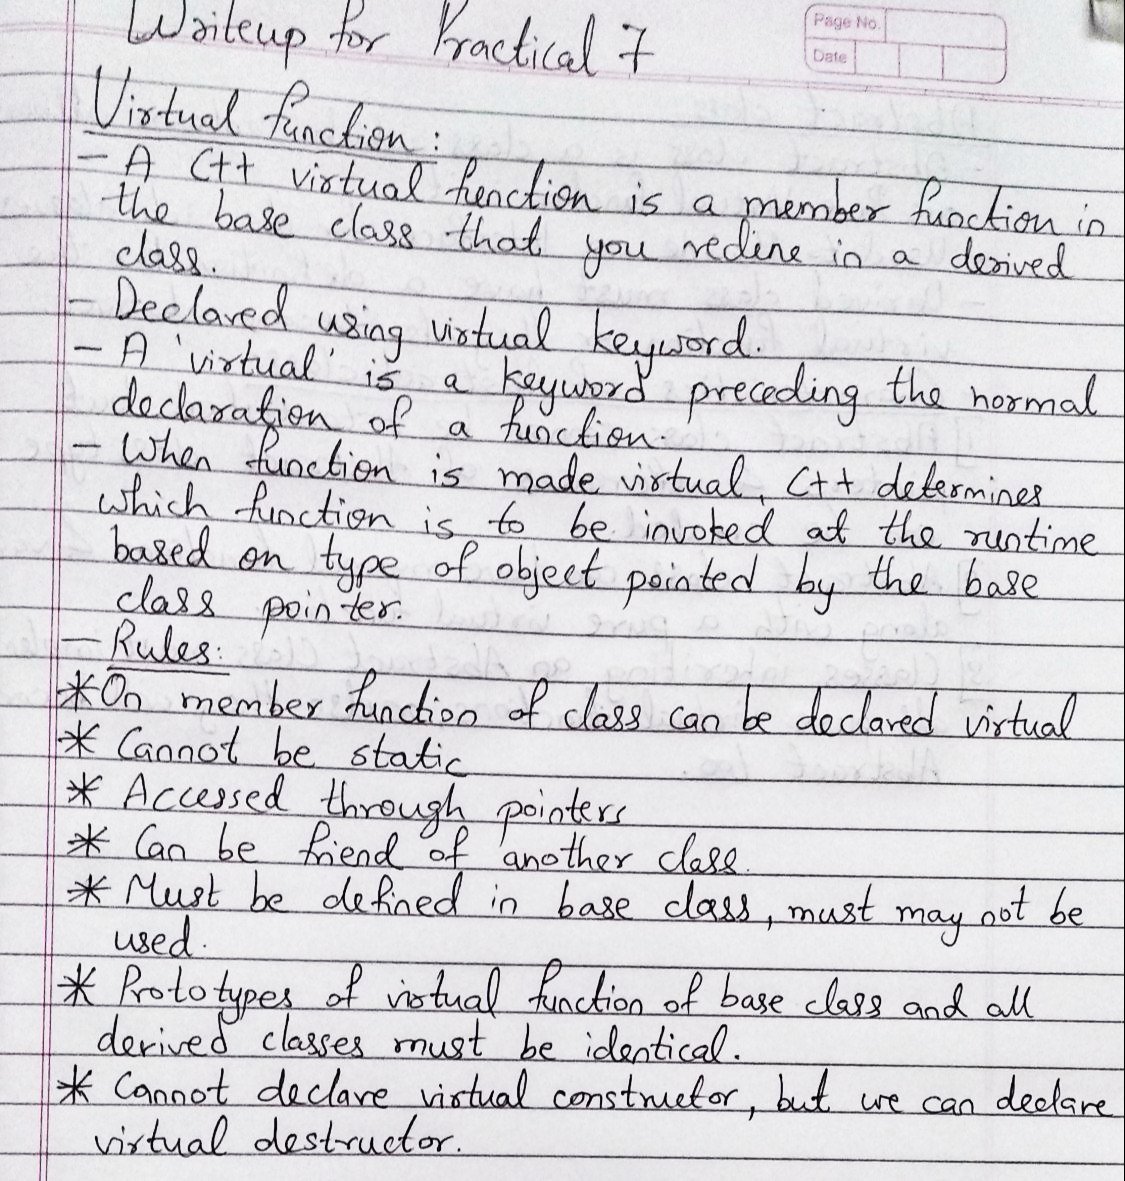 Writeup for Practical 7
Page No.
Date
Virtual function:
- A C++ virtual function is a member function in
the base class that you redine in a derived
class.
- Declared using virtual keyword.
- A 'virtual' is a keyword preceding the normal
declaration of a function.
- When function is made virtual, C++ determines
which function is to be invoked at the runtime
based on type of object pointed by the base
class pointer.
- Rules:
* On member function of class can be declared virtual
* Cannot be static
* Accessed through pointers
* Can be friend of another class.
* Must be defined in base class, must may not be
used.
* Prototypes of virtual function of base class and all
derived classes must be identical.
* Cannot declare virtual constructor, but we can declare
virtual destructor.